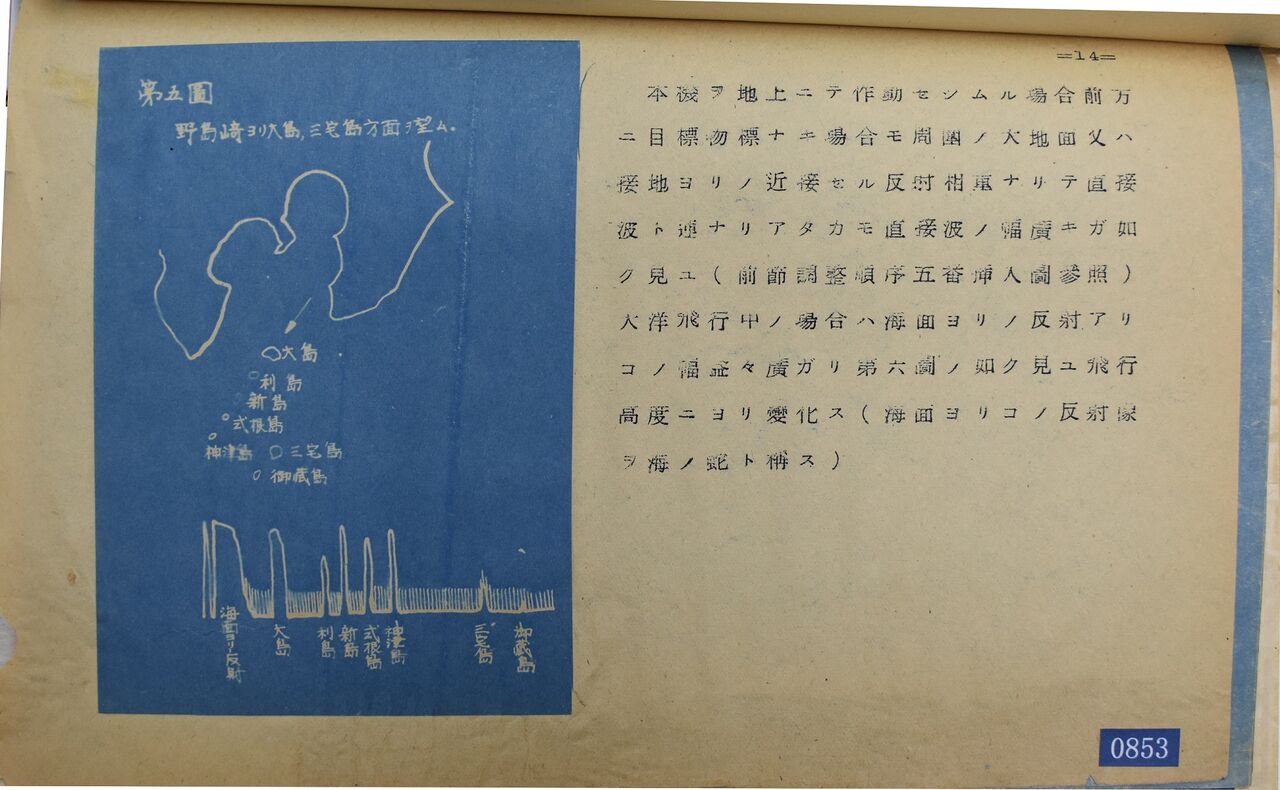 =14=
本機ヲ地上ニテ作動セシムル場合前方
ニ目標物標ナキ場合モ周圍ノ大地面又ハ
接地ヨリノ近接セル反射相重ナリテ直接
波ト連ナリアタカモ直接波ノ幅廣キガ如
ク見ユ(前節調整順序五番挿入圖參照)
大洋飛行中ノ場合ハ海面ヨリノ反射アリ
コノ幅益々廣ガリ第六圖ノ如ク見ユ飛行
高度ニヨリ變化ス(海面ヨリコノ反射像
ヲ海ノ蛇ト稱ス)
第五圖
野島崎ヨリ大島,三宅島方面ヲ望ム.
大島
利島
新島
式根島
神津島
三宅島
御蔵島
海面ヨリノ反射
大島
利島
新島
式根島
神津島
三宅島
御蔵島
0853